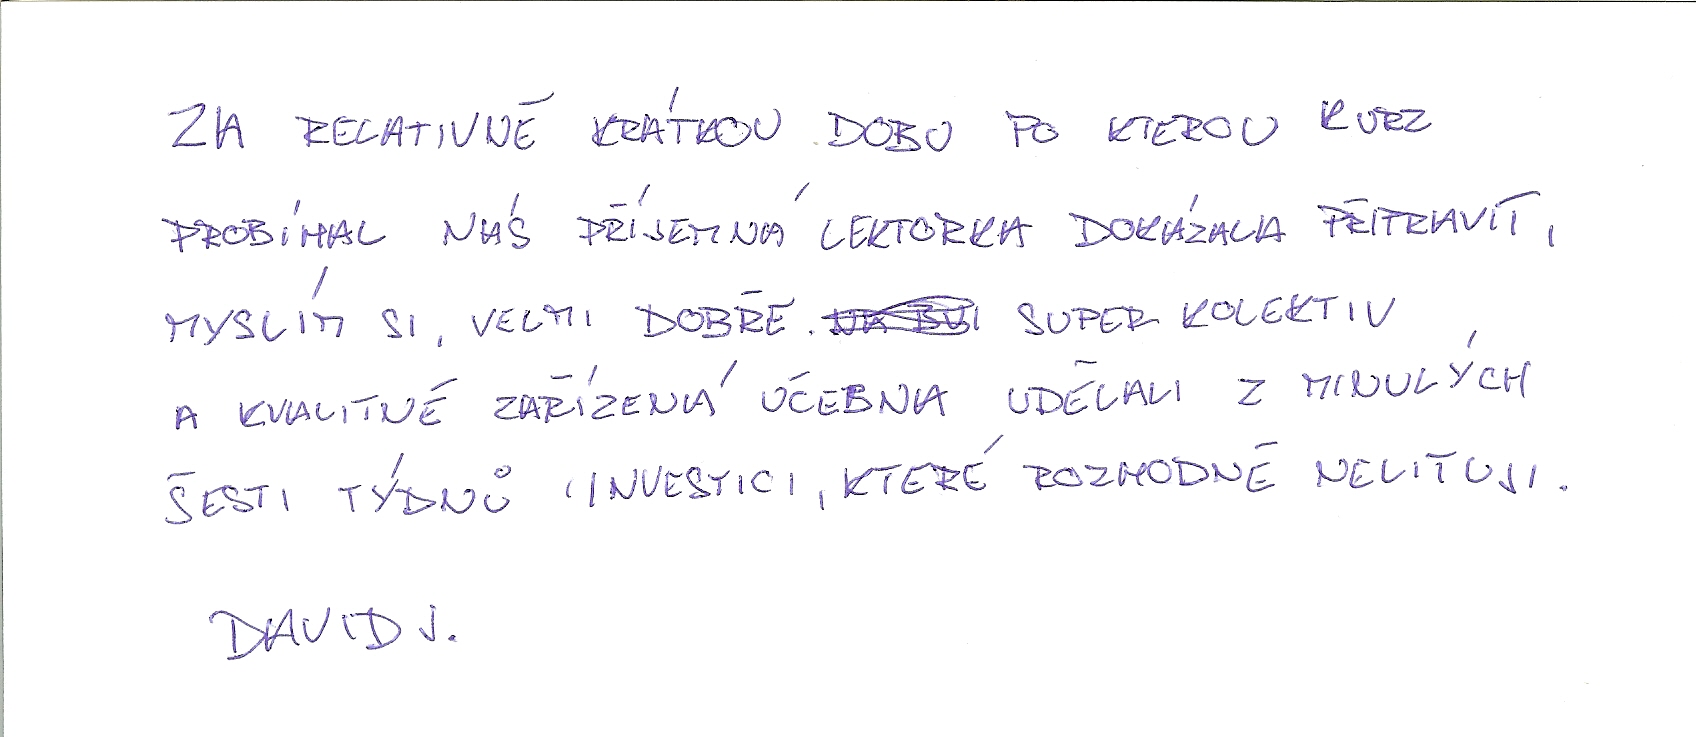 ZA RELATIVNĚ KRÁTKOU DOBU PO KTEROU KURZ
PROBÍHAL NÁS PŘÍJEMNÁ LEKTORKA DOKÁZALA PŘIPRAVIT,
MYSLÍM SI, VELMI DOBŘE. SUPER KOLEKTIV
A KVALITNĚ ZAŘÍZENÁ UČEBNA UDĚLALI Z MINULÝCH
ŠESTI TÝDNŮ INVESTICI, KTERÉ ROZHODNĚ NELITUJI.
DAVID J.